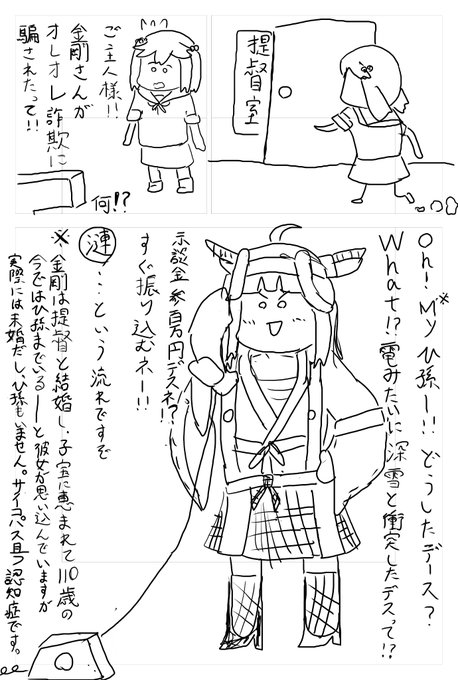 提督室
ご主人様!!
金剛さんが
オレオレ詐欺に
騙されたって!!
何!?
Oh! My※ひ孫ー!! どうしたデース?
What!? 電みたいに深雪と衝突したデスって!?
示談金参百万円デスネ?!
すぐ振り込むネー!!
漣…という流れですぞ
※金剛は提督と結婚し、子宝に恵まれて110歳の
今ではひ孫までいるーーと彼女が思い込んでいますが
実際には未婚だし、ひ孫もいません。サイコパス且つ認知症です。